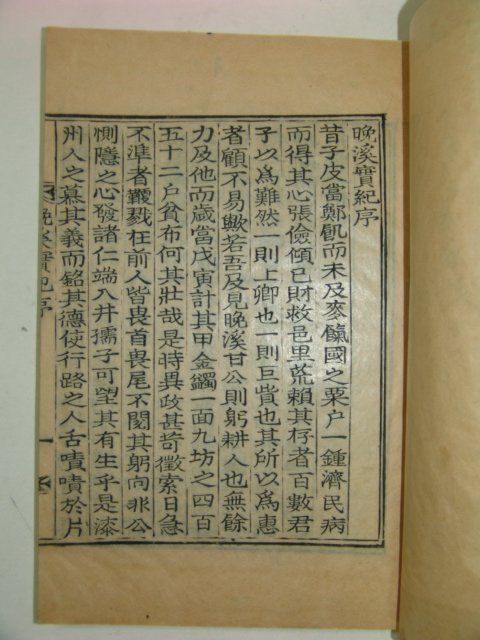 晩溪實紀序
昔子皮當鄭飢而未及麥餼國之粟户一鍾濟民病
而得其心張儉傾已財救邑里荒賴其存者百數君
子以爲難然一則上卿也一則巨貲也其所以爲惠
者顧不易歟若吾及見晩溪甘公則躬耕人也無餘
力及他而歲當戊寅計其甲金蠲一面九坊之四百
五十二户貧布何其壯哉是時異政甚苛徵索日急
不準者鞭戮在前人皆畏首畏尾不閱其躬向非公
惻隱之心發諸仁端入井孺子可望其有生乎是漆
州人之慕其義而銘其德使行路之人舌嘖嘖於片
晩溪實紀序
一